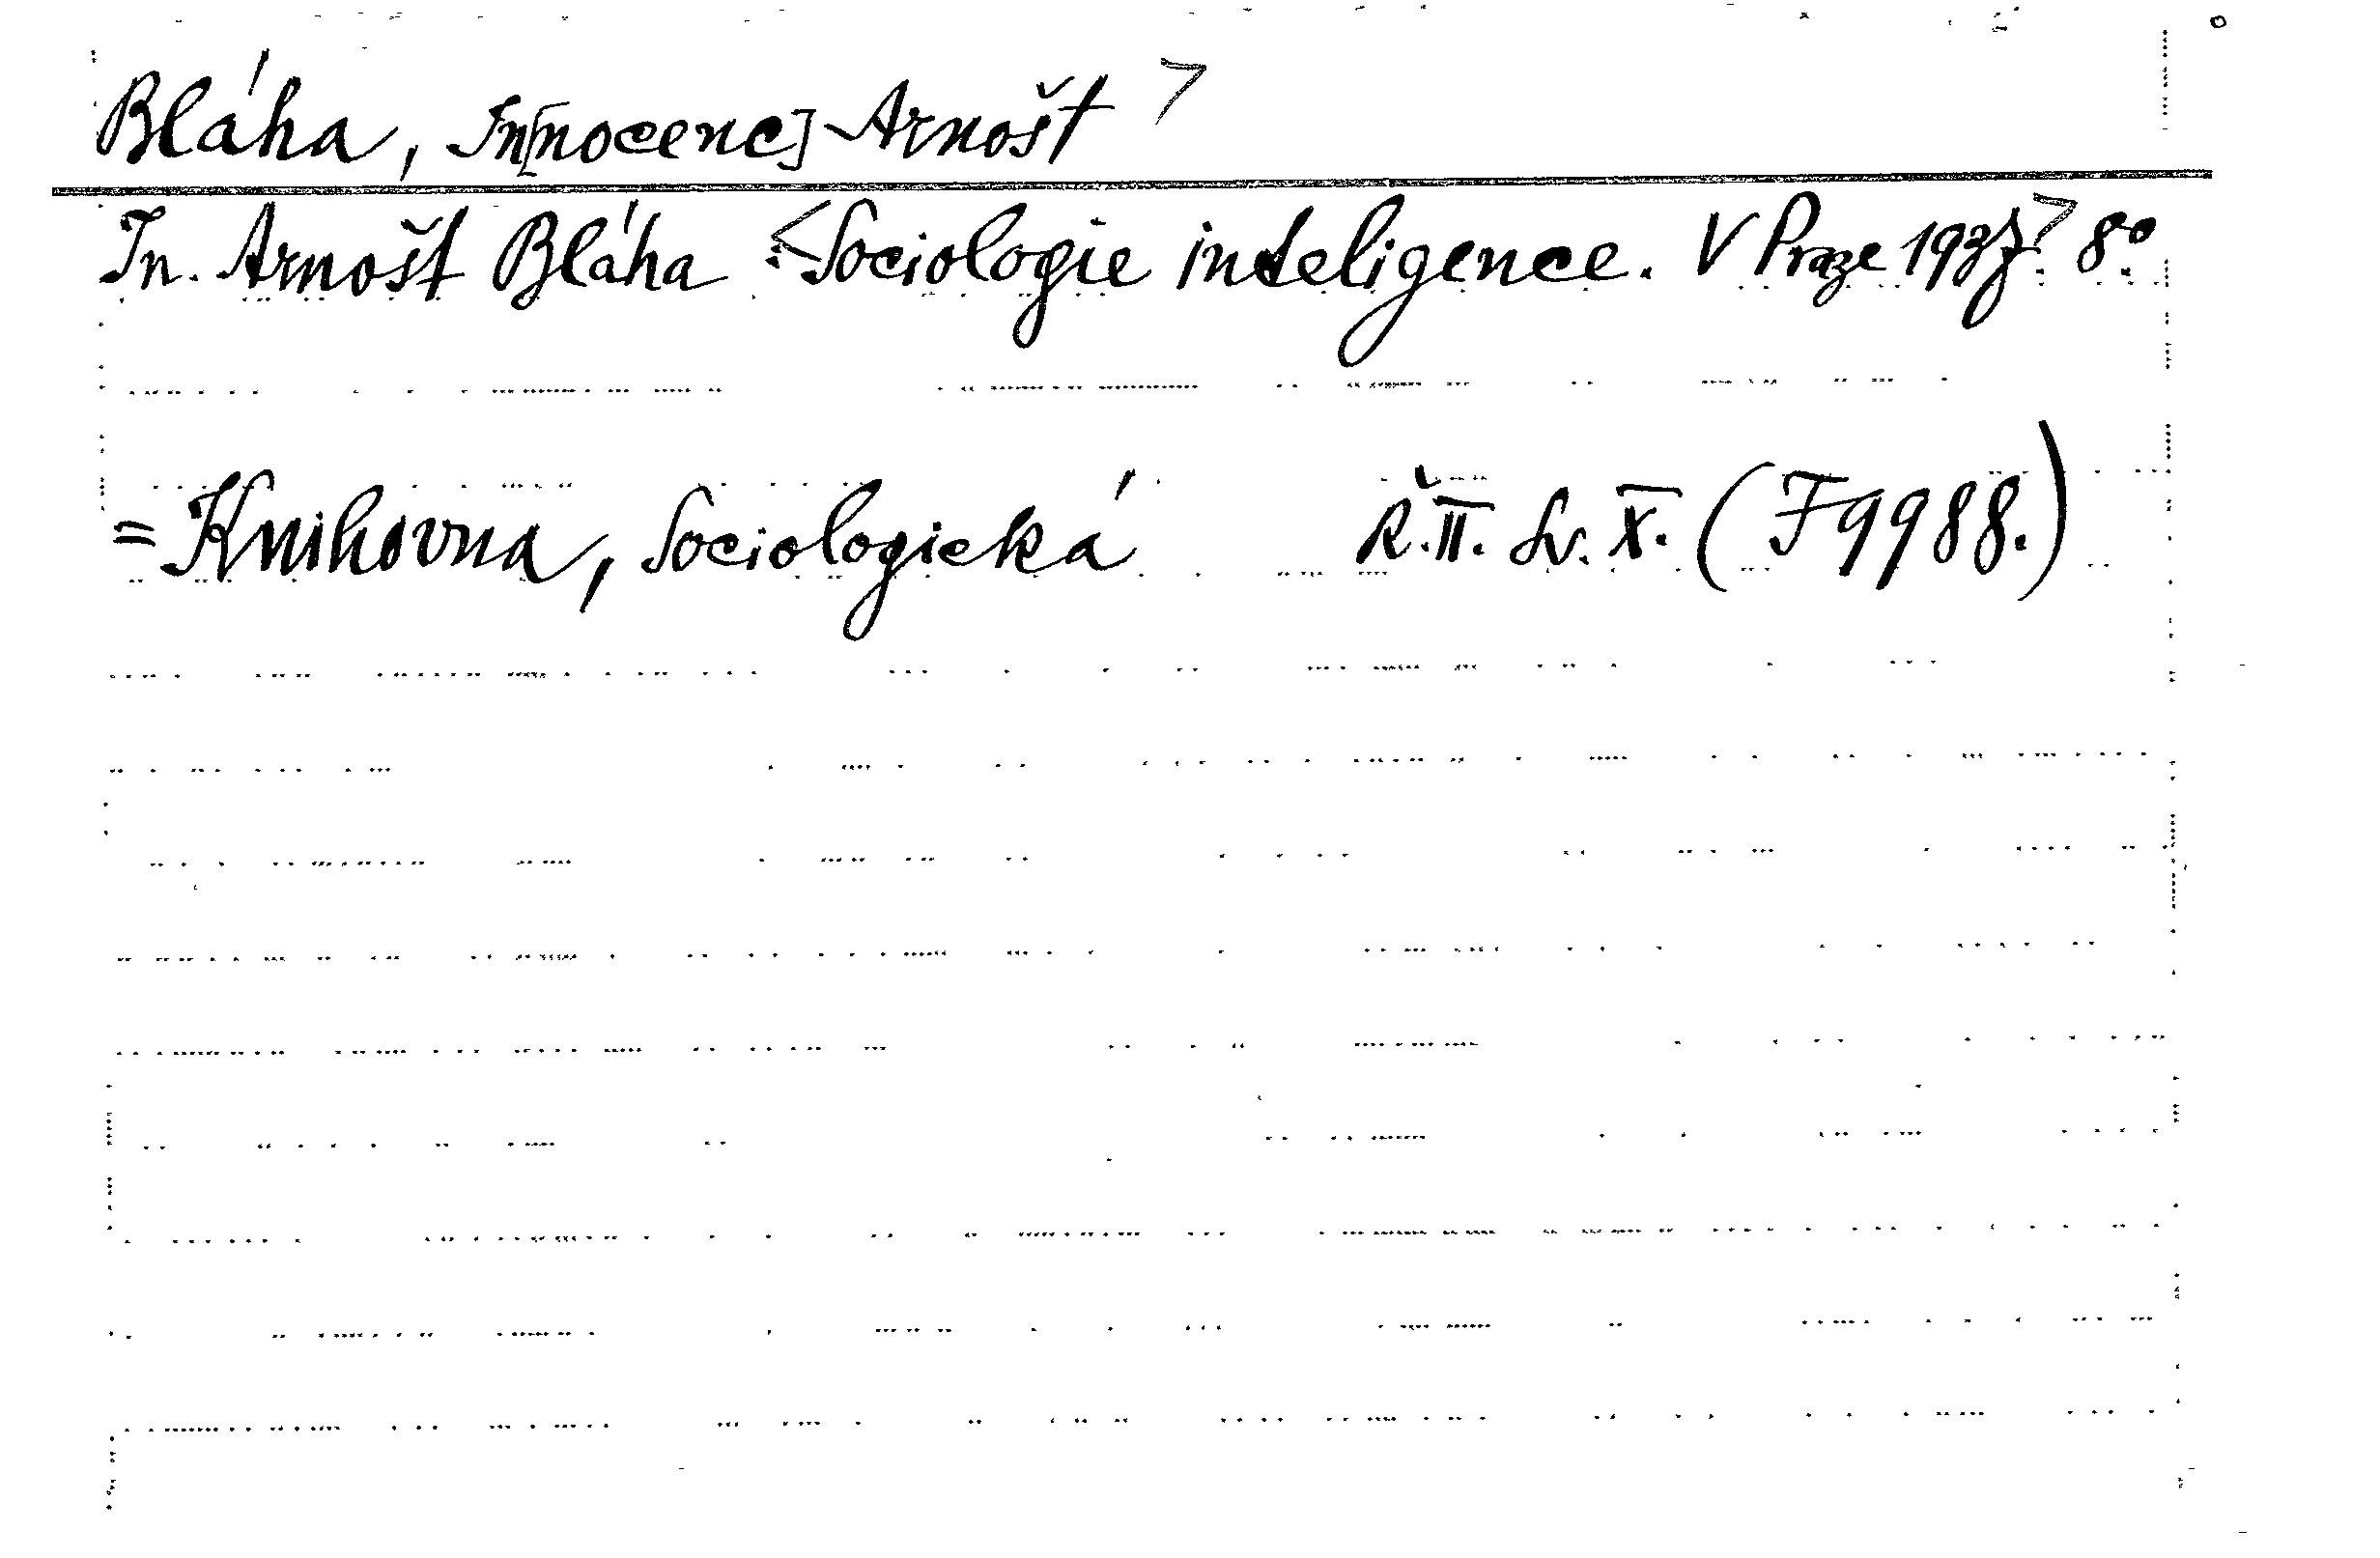 Bláha, In[nocenc] Arnošt >
In. Arnošt Bláha : <Sociologie inteligence. V Praze 1937.> 8°.
= Knihovna, Sociologická Ř.II. Sv. X. (F 9988.)